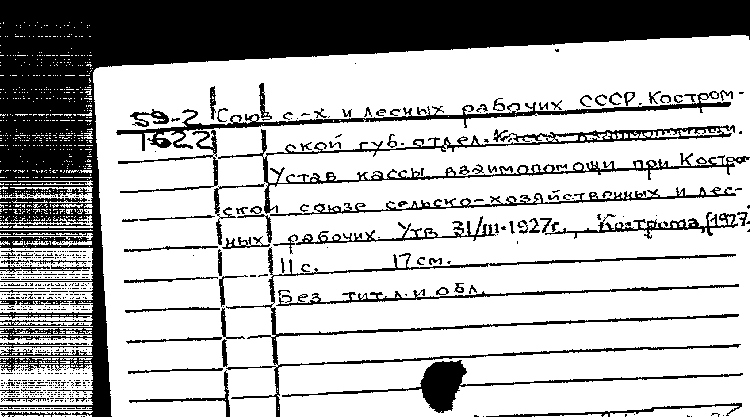 59-2 Союз с.-х и лесных рабочих СССР. Костром-
1622 ской губ. отдел. Касса взаимопомощи.
Устав кассы взаимопомощи при Костро-
ской союзе сельско-хозяйственных и лес-
ных рабочих. Утв. 31/III-1927г., Кострома, [1927]
11 с. 17 см.
Без тит. л. и обл.